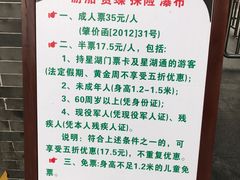 游船 赏蝶 探险 瀑布
一、成人票35元/人
(肇价函[2012]31号)
二、半票17.5元/人，包括:
1、持星湖门票卡及星湖通的游客
(法定假期、黄金周不享受五折优惠);
2、未成年人(身高1.2-1.5米)、
3、60周岁以上(凭身份证);
4、现役军人(凭现役军人证)、残
疾人(凭本人残疾人证)。
说明: 符合上述条件之一的，可
享受五折优惠(17.5元)，不重复优惠。
三、免票:身高不足1.2米的儿童免
票。